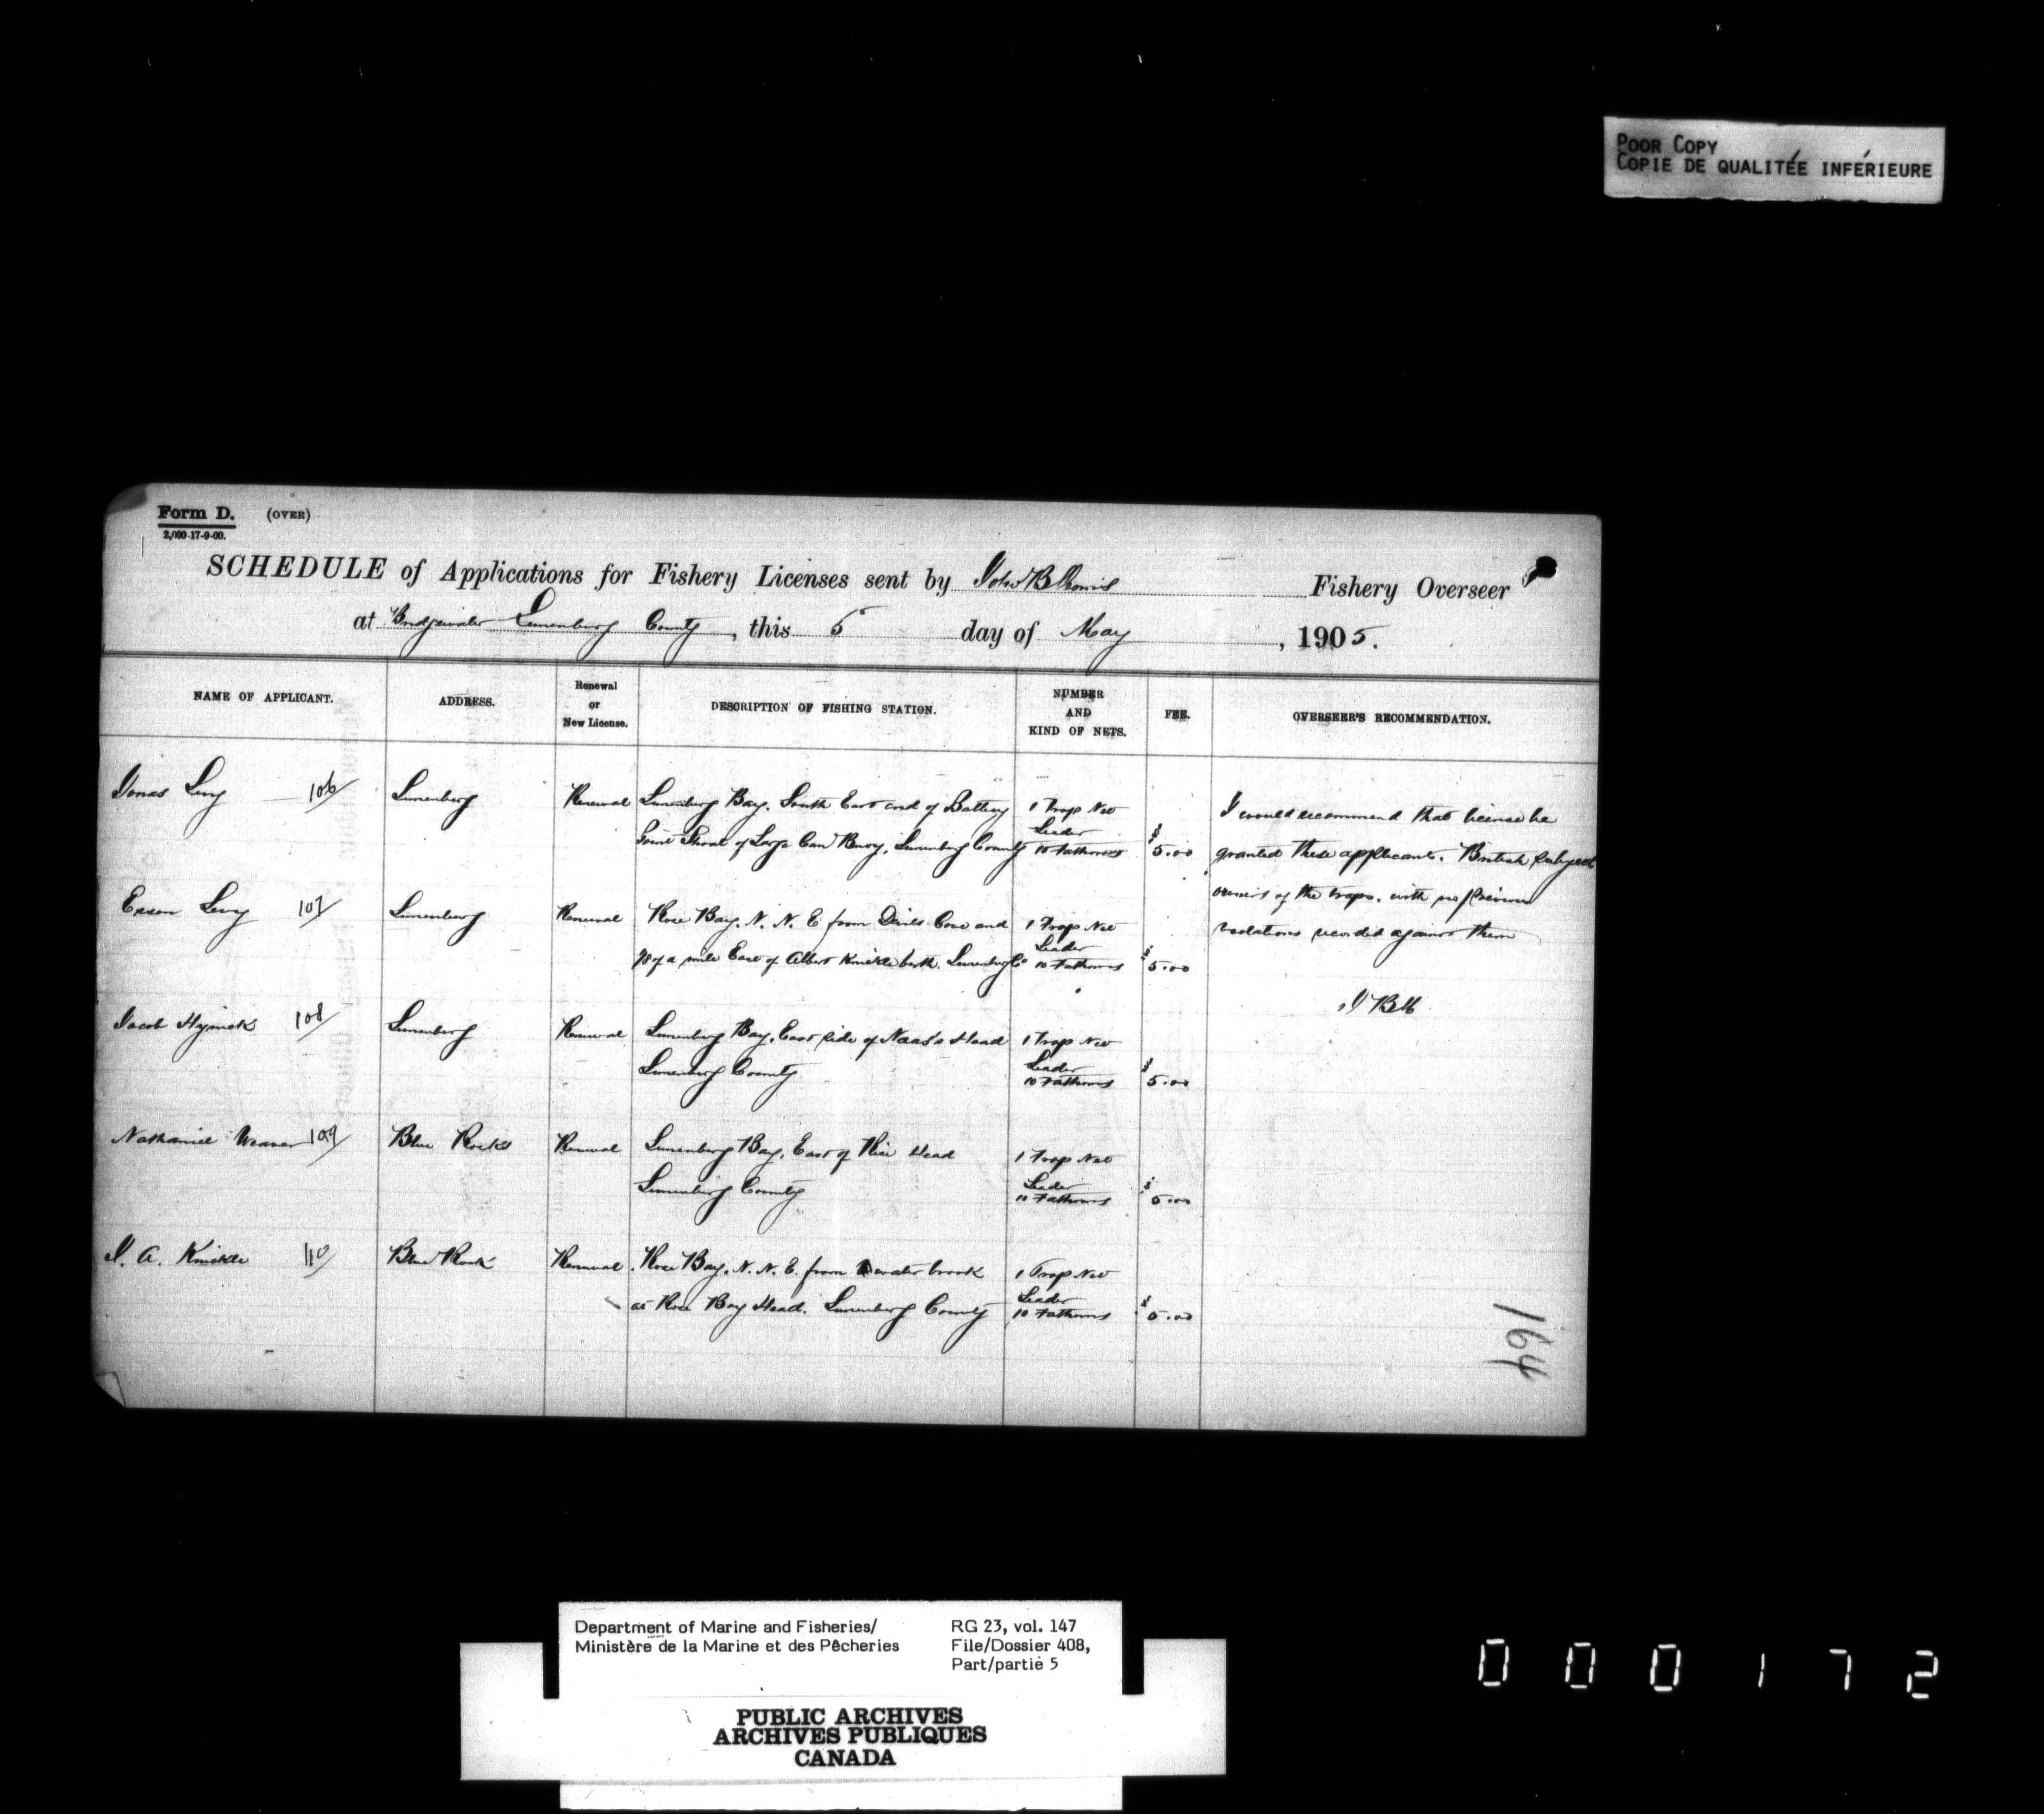 POOR COPY
COPIE DE QUALITÉE INFÉRIEURE
Form D. (OVER)
2,000-17-9-00.
SCHEDULE of Applications for Fishery Licenses sent by John B Fishery Overseer
at Bridgewater Lunenburg County, this 5 day of May, 1905.
NAME OF APPLICANT. ADDRESS. Renewal or New License. DESCRIPTION OF FISHING STATION. NUMBER AND KIND OF NETS. FEE. OVERSEER'S RECOMMENDATION.
Jonas Levy 106 Lunenburg Renewal Lunenburg Bay. South East end of Battery 1 Trap Net
Point Shoal of Large Can Buoy, Lunenburg County Leader 10 Fathoms $5.00
Levy 107 Lunenburg Renewal Rose Bay. N. N. E from Devils Cove and 1 Trap Net
of a mile East of Albert Knickle berth. Lunenburg Co Leader 10 Fathoms $5.00
Jacob 108 Lunenburg Renewal Lunenburg Bay. East side of Naas's Head 1 Trap Net
Lunenburg County Leader 10 Fathoms $5.00
Nathaniel Weaver 109 Blue Rocks Renewal Lunenburg Bay. East of Head 1 Trap Net
Lunenburg County Leader 10 Fathoms $5.00
J. A. Knickle 110 Blue Rock Renewal Rose Bay. N. N. E. from water brook 1 Trap Net
at Rose Bay Head. Lunenburg County Leader 10 Fathoms $5.00
I would recommend that license be
granted these applicants. British subjects
owners of the traps. with no previous
violations recorded against them
164
Department of Marine and Fisheries/
Ministère de la Marine et des Pêcheries
RG 23, vol. 147
File/Dossier 408,
Part/partie 5
PUBLIC ARCHIVES
ARCHIVES PUBLIQUES
CANADA
000172